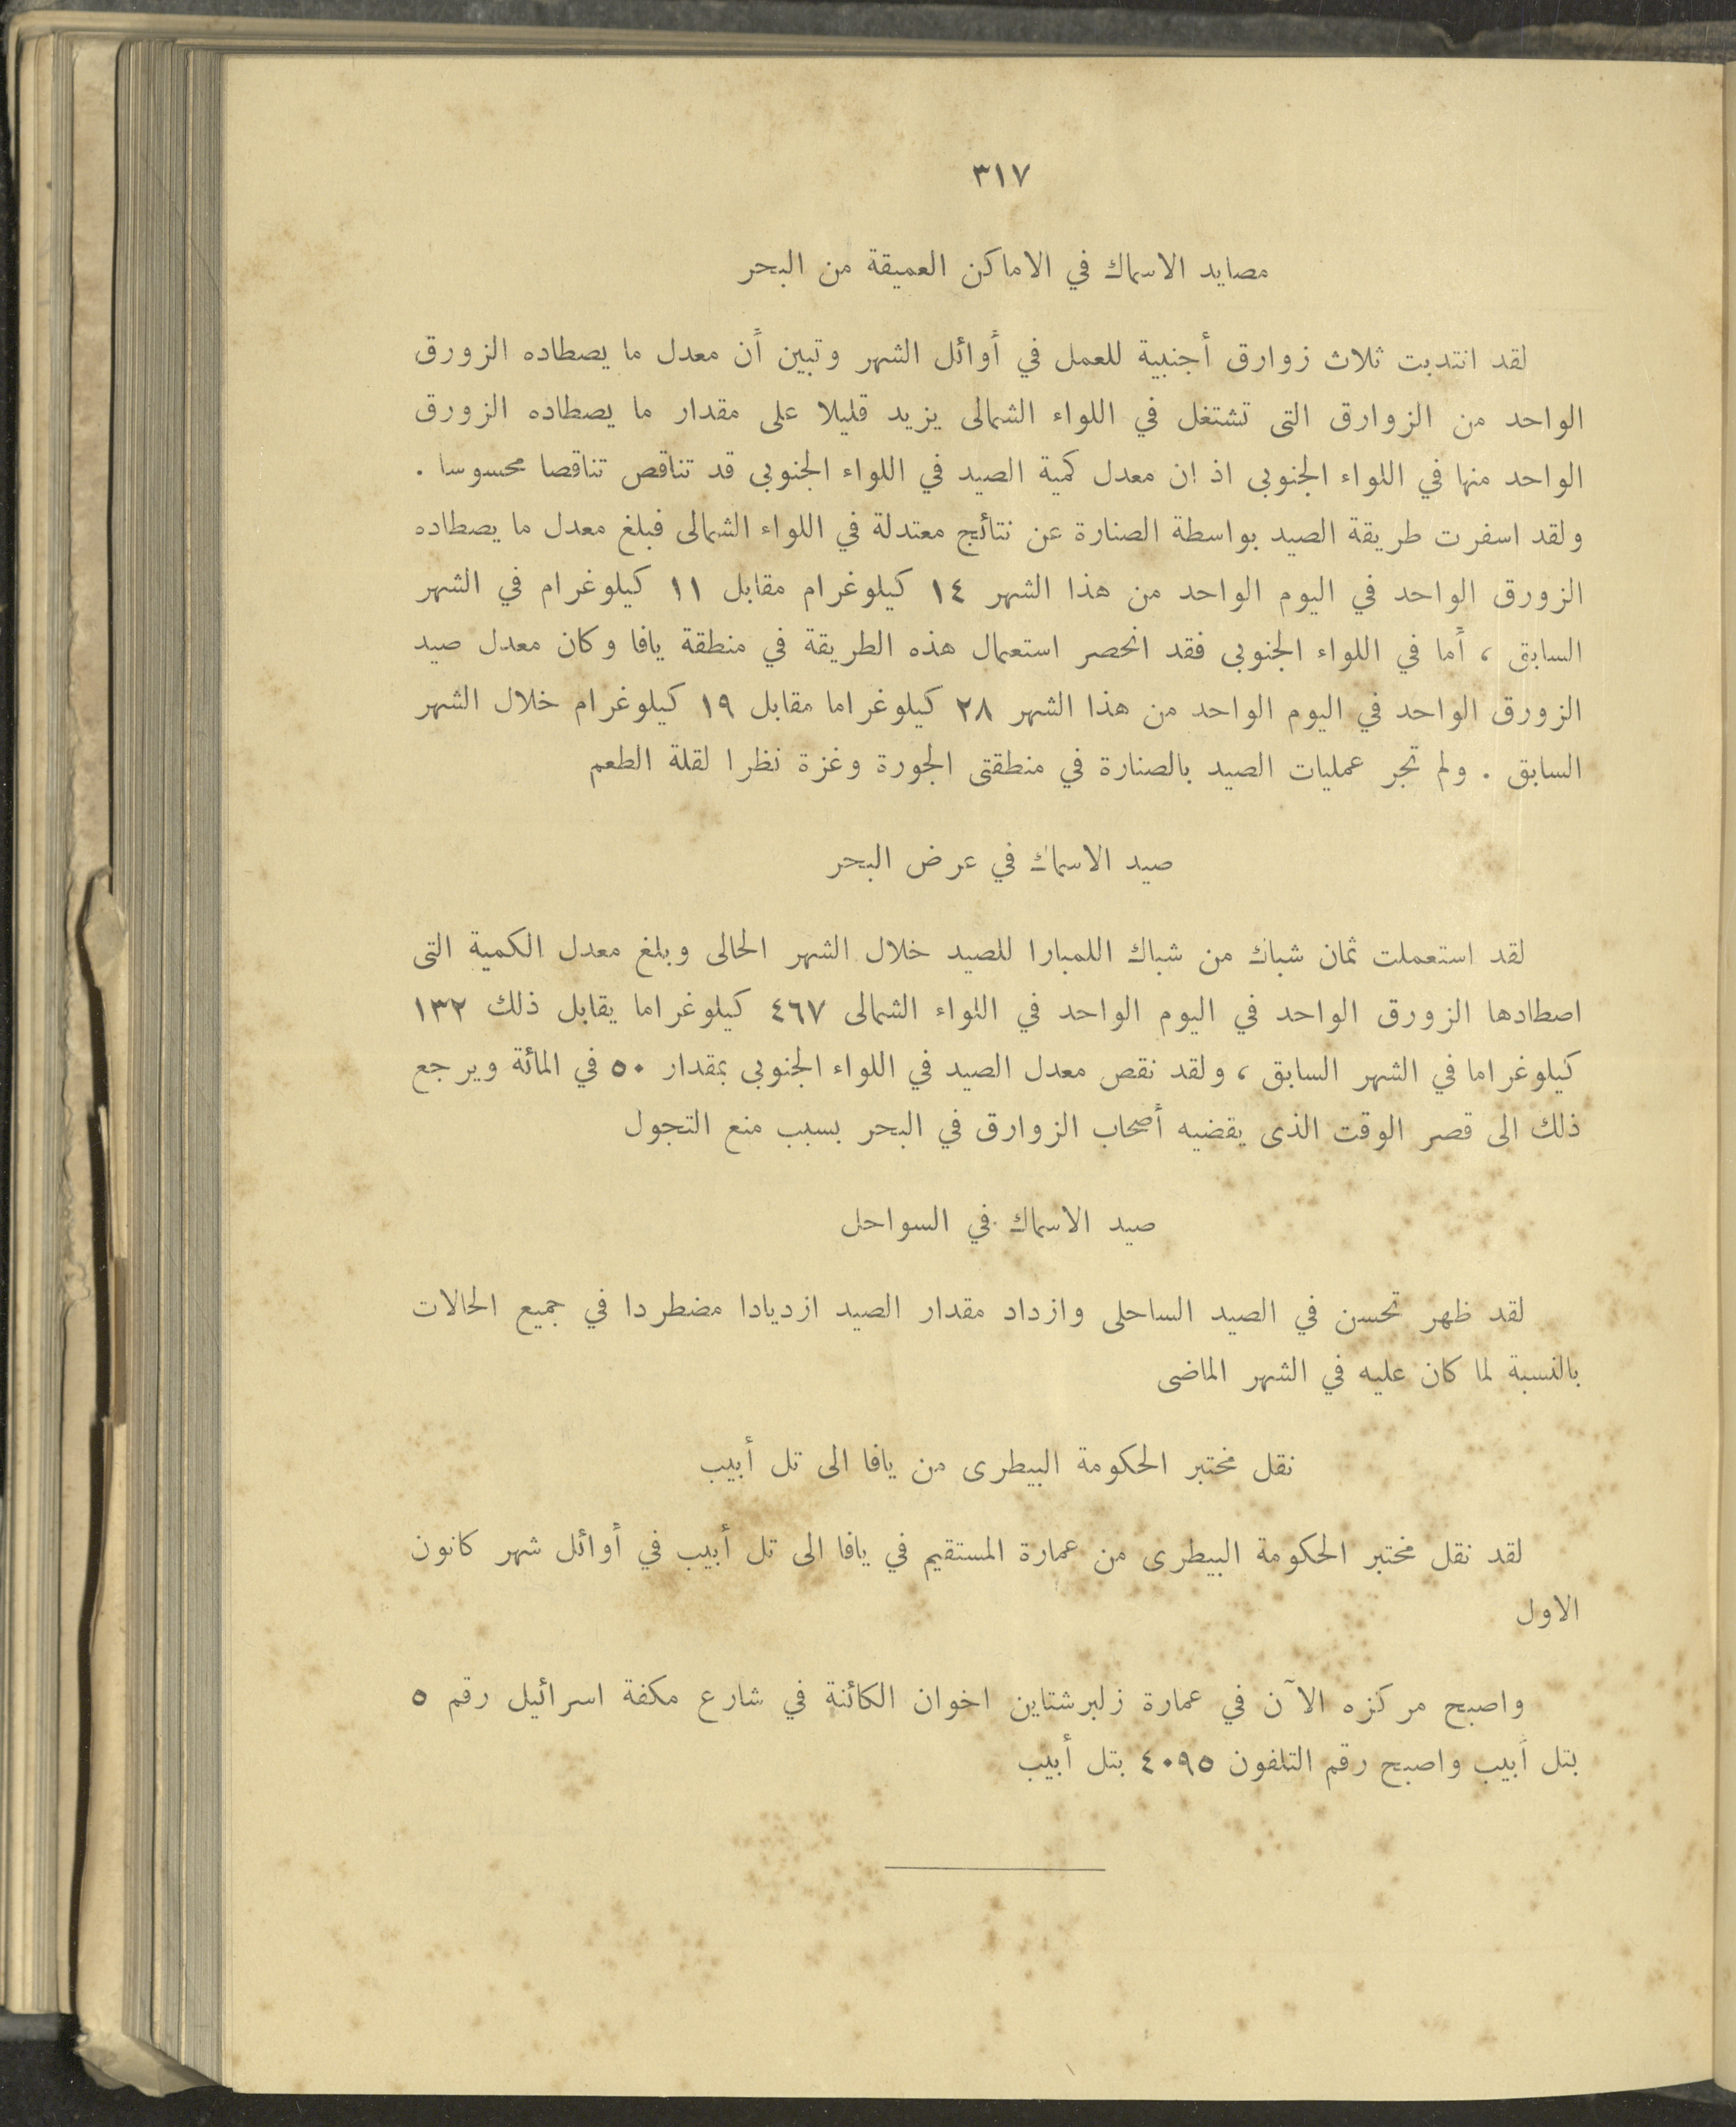 ٣١٧
مصايد الاسماك في الاماكن العميقة من البحر
لقد انتدبت ثلاث زوارق أجنبية للعمل في أوائل الشهر وتبين أن معدل ما يصطاده الزورق
الواحد من الزوارق التى تشتغل في اللواء الشمالى يزيد قليلا على مقدار ما يصطاده الزورق
الواحد منها في اللواء الجنوبى اذ ان معدل كمية الصيد في اللواء الجنوبى قد تناقص تناقصا محسوسا .
ولقد اسفرت طريقة الصيد بواسطة الصنارة عن نتائج معتدلة في اللواء الشمالى فبلغ معدل ما يصطاده
الزورق الواحد في اليوم الواحد من هذا الشهر ١٤ كيلوغرام مقابل ١١ كيلوغرام في الشهر
السابق ، أما في اللواء الجنوبى فقد انحصر استعمال هذه الطريقة في منطقة يافا وكان معدل صيد
الزورق الواحد في اليوم الواحد من هذا الشهر ٢٨ كيلوغراما مقابل ١٩ كيلوغرام خلال الشهر
السابق . ولم تجر عمليات الصيد بالصنارة في منطقتى الجورة وغزة نظرا لقلة الطعم
صيد الاسماك في عرض البحر
لقد استعملت ثمان شباك من شباك اللمبارا للصيد خلال الشهر الحالى وبلغ معدل الكمية التى
اصطادها الزورق الواحد في اليوم الواحد في اللواء الشمالى ٤٦٧ كيلوغراما يقابل ذلك ١٣٢
كيلوغراما في الشهر السابق ، ولقد نقص معدل الصيد في اللواء الجنوبى بمقدار ٥٠ في المائة ويرجع
ذلك الى قصر الوقت الذى يقضيه أصحاب الزوارق في البحر بسبب منع التجول
صيد الاسماك في السواحل
لقد ظهر تحسن في الصيد الساحلى وازداد مقدار الصيد ازديادا مضطردا في جميع الحالات
بالنسبة لما كان عليه في الشهر الماضى
نقل مختبر الحكومة البيطرى من يافا الى تل أبيب
لقد نقل مختبر الحكومة البيطرى من عمارة المستقيم في يافا الى تل أبيب في أوائل شهر كانون
الاول
واصبح مركزه الآن في عمارة زلبرشتاين اخوان الكائنة في شارع مكفة اسرائيل رقم ٥
بتل أبيب واصبح رقم التلفون ٤٠٩٥ بتل أبيب